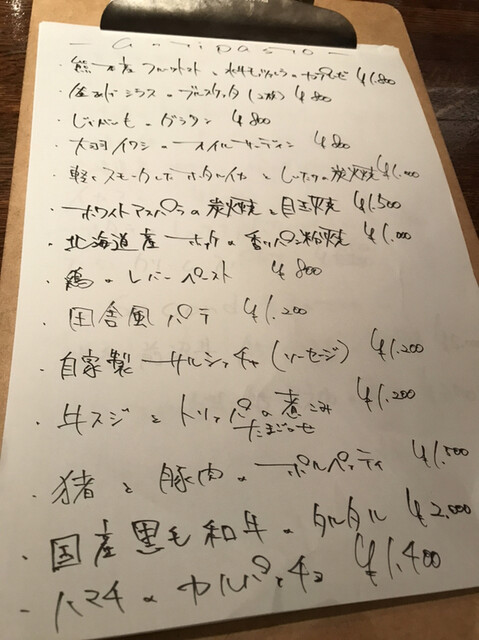 - Antipasto -
・熊本産フルーツトマトと水牛モッツァレラのカプレーゼ ¥1.800
・釜あげシラスのブルスケッタ(2枚) ¥800
・じゃがいものグラタン ¥800
・大羽イワシのオイルサーディン ¥800
・軽くスモークしたホタルイカとしいたけの炭火焼 ¥1.000
・ホワイトアスパラの炭火焼と目玉焼 ¥1.500
・北海道産ホッケの香草パン粉焼 ¥1.000
・鶏のレバーペースト ¥800
・田舎風パテ ¥1.200
・自家製サルシッチャ(ソーセージ) ¥1.200
・牛スジとトリッパの煮こみ ¥1.200
たまごのせ
・猪と豚肉のポルペッティ ¥1.500
・国産黒毛和牛のタルタル ¥2.000
・ハマチのカルパッチョ ¥1.400